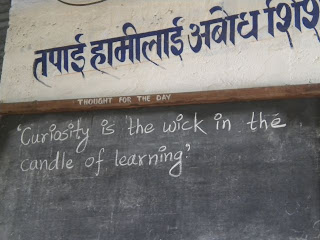 तपाई हामीलाई अबोध शिशु
THOUGHT FOR THE DAY
'Curiosity is the wick in the
candle of learning.'